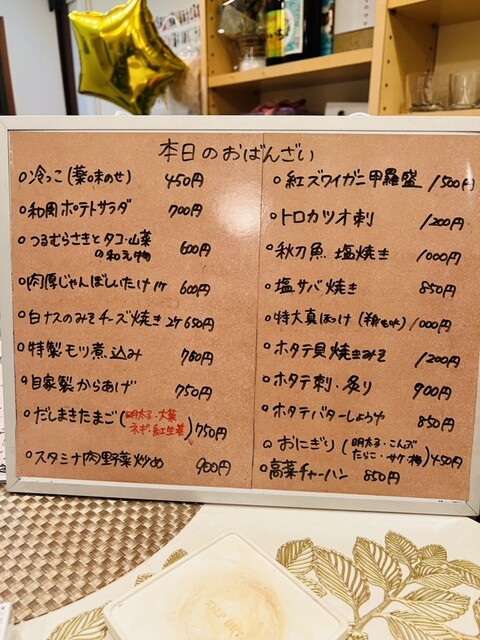 本日のおばんざい
○冷っこ(薬味のせ) 450円
○和風ポテトサラダ 700円
○つるむらさきとタコ・山菜
の和え物 600円
○肉厚じゃんぼしいたけ 1ケ 600円
○白ナスのみそチーズ焼き 2ケ 650円
○特製モツ煮込み 780円
○自家製からあげ 750円
○だしまきたまご(明太子・大葉
ネギ・紅生姜) 750円
○スタミナ肉野菜炒め 900円
○紅ズワイガニ甲羅盛 1500円
○トロカツオ刺 1200円
○秋刀魚 塩焼き 1000円
○塩サバ焼き 850円
○特大真ほっけ 1000円
○ホタテ貝焼きみそ 1200円
○ホタテ刺・炙り 900円
○ホタテバターしょうゆ 850円
○おにぎり(明太子・こんぶ
たらこ・サケ・梅) 450円
○高菜チャーハン 850円
KEEP DRY